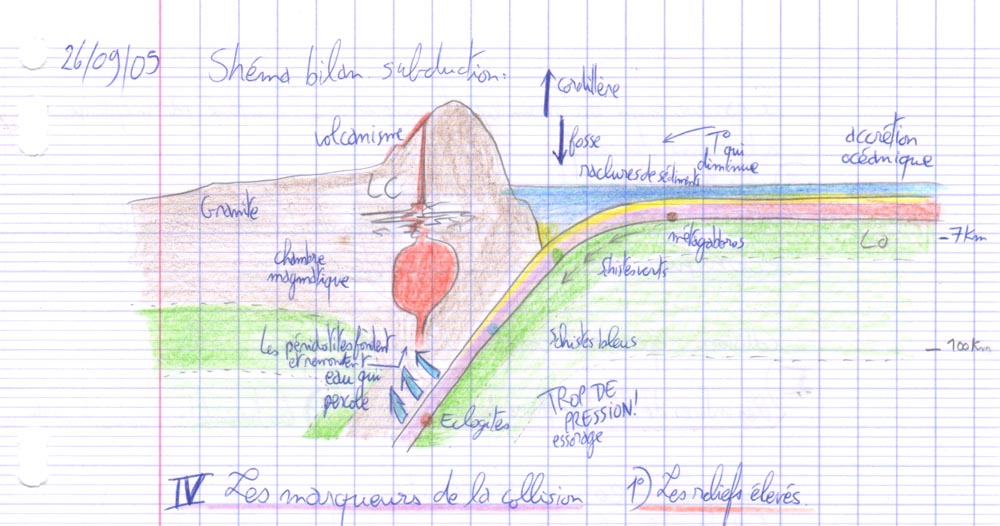 26/09/05 Shéma bilan subduction.
cordillère
volcanisme
fosse
T° qui
diminue
accrétion
océanique
raclures de sédiments
LC
Granite
métagabbros
LO
- 7 Km
chambre
magmatique
Schistes verts
Les péridotites fondent
et remontent
eau qui
percole
Schistes bleus
- 100 Km
TROP DE
PRESSION!
essorage
Eclogites
IV Les marqueurs de la collision 1°) Les reliefs élevés.